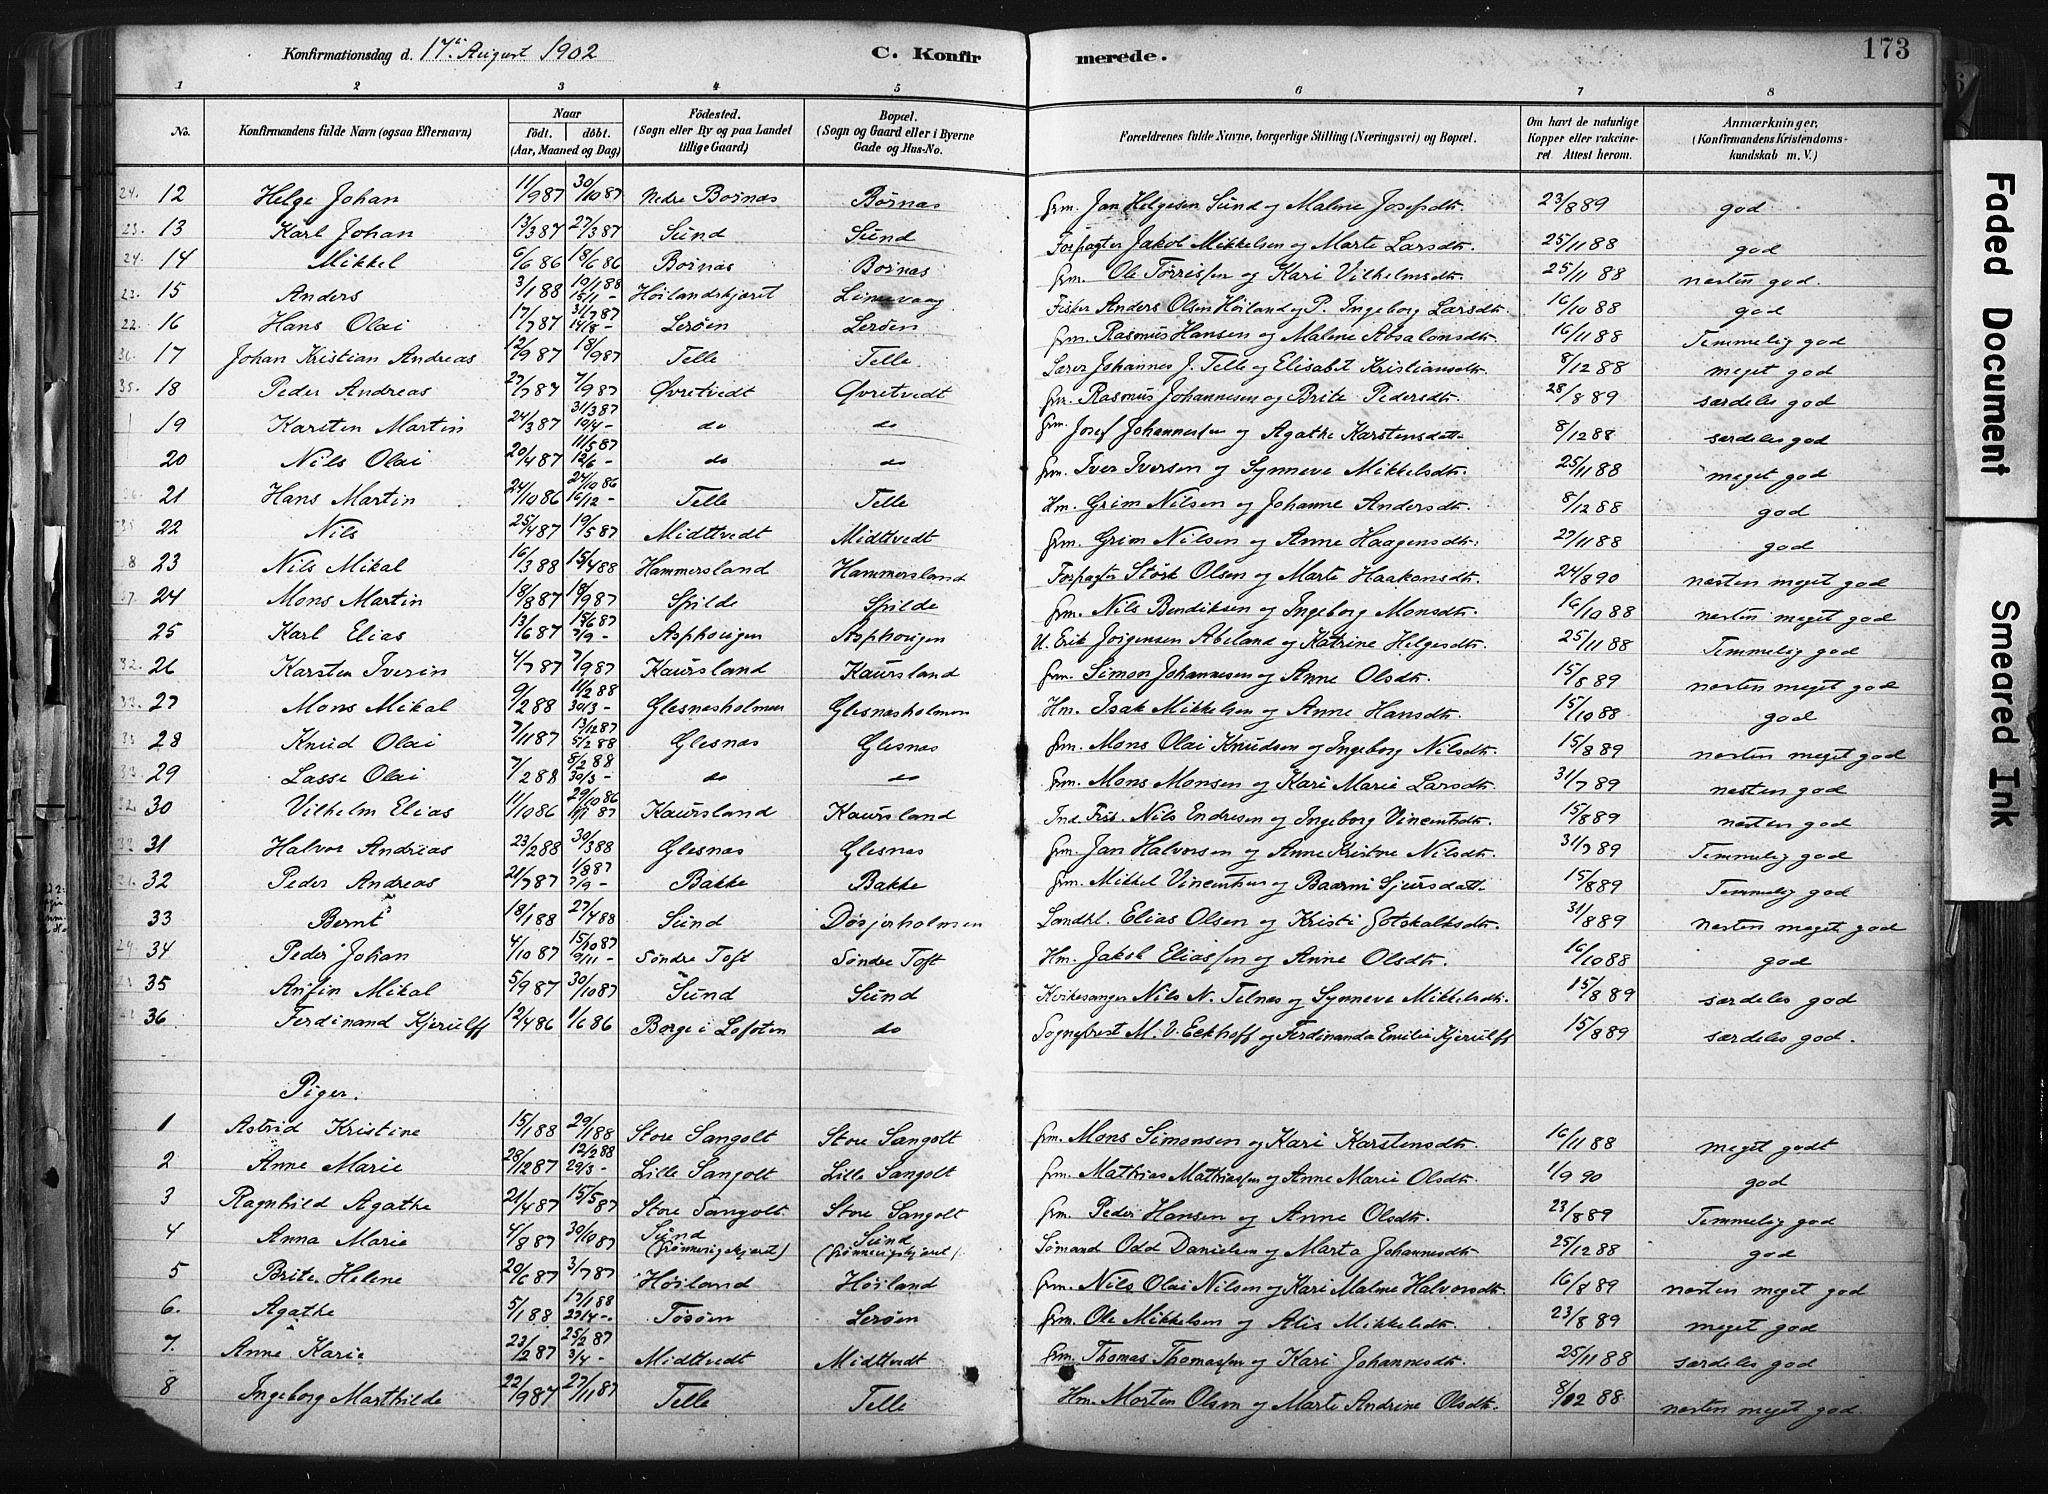 Konfirmationsdag d. 17de August 1902 C. Konfirmerede. 173
1 2 3 4 5 6 7 8
No. Konfirmandens fulde Navn (ogsaa Efternavn) Naar født. døbt. (Aar, Maaned og Dag) Fødested. (Sogn eller By og paa Landet tillige Gaard) Bopæl. (Sogn og Gaard eller i Byerne Gade og Hus-No. Forældrenes fulde Navne, borgerlige Stilling (Næringsvei) og Bopæl. Om havt de naturlige Kopper eller vakcineret. Attest herom. Anmærkninger, (Konfirmandens Kristendomskundskab m. V.)
12 Helge Johan 11/9 87 30/10 87 Nedre Børnæs Børnæs Grm. Jan Helgesen Sund og Malene Josefsdtr. 23/8 89 god
13 Karl Johan 13/3 87 27/3 87 Sund Sund Forpagter Jakob Mikkelsen og Marte Larsdtr. 25/11 88 god
14 Mikkel 6/6 86 18/6 86 Børnæs Børnæs Grm. Ole Tørrissen og Kari Vilhelmsdtr. 25/11 88 næsten god.
15 Anders 3/1 88 10/1 88 15/1 - Høilandskjæret Limevaag Fisker Anders Olsen Høiland og P. Ingeborg Larsdtr. 16/10 88 god
16 Hans Olai 17/7 87 31/7 87 14/8 - Lerøen Lerøen Grm. Rasmus Hansen og Malene Absalonsdtr. 16/11 88 Temmelig god
17 Johan Kristian Andreas 12/9 87 18/9 87 Telle Telle Lærer Johannes J. Telle og Elisabet Kristiansdtr. 8/12 88 meget god
18 Peder Andreas 27/7 87 7/9 87 Øvretvedt Øvretvedt Grm. Rasmus Johannesen og Brite Pedersdtr. 28/8 89 særdeles god
19 Karsten Martin 24/3 87 31/3 87 10/4 - do do Grm. Josef Johannessen og Agathe Karstensdatt. 8/12 88 særdeles god
20 Nils Olai 20/4 87 11/5 87 12/6 - do do Grm. Iver Iversen og Synneve Mikkelsdtr. 25/11 88 meget god
21 Hans Martin 24/10 86 24/10 86 16/12 - Telle Telle Hm. Grim Nilsen og Johanne Andersdtr. 8/12 88 god
22 Nils 25/4 87 19/5 87 Midttvedt Midttvedt Grm. Grim Nilsen og Anne Haagensdtr. 27/11 88 god
23 Nils Mikal 16/3 88 15/4 88 Hammersland Hammersland Forpagter Størk Olsen og Marte Haakonsdtr. 24/8 90 næsten meget god
24 Mons Martin 18/8 87 18/9 87 Spilde Spilde Grm. Nils Bendiksen og Ingeborg Monsdtr. 16/10 88 næsten meget god
25 Karl Elias 13/6 87 7/9 - Asphovigen Asphovigen U. Erik Jørgensen Abeland og Katrine Helgesdtr. 25/11 88 Temmelig god
26 Karsten Iverin 4/7 87 7/9 87 Kaursland Kaursland Grm. Simon Johannesen og Anne Olsdtr. 15/8 89 næsten meget god
27 Mons Mikal 9/2 88 11/2 88 30/3 - Glesnæsholmen Glesnæsholmen Hm. Isak Mikkelsen og Anne Hansdtr. 15/10 88 god
28 Knud Olai 7/11 87 13/12 87 5/2 88 Glesnæs Glesnæs Grm. Mons Olai Knudsen og Ingeborg Nilsdtr. 15/8 89 næsten meget god
29 Lasse Olai 7/2 88 8/2 88 30/3 - do do Grm. Mons Monsen og Kari Marie Larsdtr. 31/7 89 næsten god
30 Vilhelm Elias 11/10 86 29/10 86 Kaursland Kaursland Ind. Fisk. Nils Endresen og Ingeborg Vincentsdtr. 15/8 89 næsten god
31 Halvor Andreas 23/2 88 30/3 88 Glesnæs Glesnæs Grm. Jan Halvorsen og Anne Kristne Nilsdtr. 31/7 89 Temmelig god
32 Peder Andreas 21/7 87 1/8 87 7/9 - Bakke Bakke Grm. Mikkel Vincentsen og Baarni Sjursdatt. 15/8 89 Temmelig god
33 Bernt 18/1 88 27/4 88 Sund Døsjerholmen Landhl. Elias Olsen og Kristi Gotskalksdtr. 31/8 89 næsten meget god
34 Peder Johan 4/10 87 15/10 87 9/11 - Søndre Toft Søndre Toft Hm. Jakob Eliassen og Anne Olsdtr. 16/10 88 god
35 Anfin Mikal 5/9 87 30/10 87 Sund Sund Kirkesanger Nils N. Telnæs og Synneve Mikkelsdtr. 15/8 89 særdeles god
36 Ferdinand Kjerulff 12/4 86 1/6 86 Borge i Lofoten do Sogneprest M. V. Eckhoff og Ferdinanda Emilie Kjerulff 15/8 89 særdeles god.
Piger.
1 Astrid Kristine 15/1 88 29/1 88 Store Sangolt Store Sangolt Grm. Mons Simonsen og Kari Karstensdtr. 16/11 88 meget godt
2 Anne Marie 28/12 87 12/2 88 29/3 - Lille Sangolt Lille Sangolt Grm. Mathias Mathiassen og Anne Marie Olsdtr. 1/9 90 god
3 Ragnhild Agathe 21/4 87 15/5 87 Store Sangolt Store Sangolt Grm. Peder Hansen og Anne Olsdtr. 23/8 89 Temmelig god
4 Anna Marie 4/8 87 30/10 87 Sund Sund Sømand Odd Danielsen og Marta Johannesdtr. 25/12 88 god
5 Brite Helene 20/6 87 3/7 87 Høiland Høiland Grm. Nils Olai Nilsen og Kari Malene Halvorsdtr. 16/8 89 næsten meget god
6. Agathe 5/1 88 17/1 88 22/4 - Tøsøen Lerøen Grm. Ole Mikkelsen og Alis Mikkelsdtr. 23/8 89 meget god
7. Anne Karie 23/2 87 25/2 87 3/4 - Midttvedt Midttvedt Grm. Thomas Thomassen og Kari Johannesdtr. 25/11 88 særdeles god
8 Ingeborg Marthilde 22/9 87 27/11 87 Telle Telle Hm. Morten Olsen og Marte Andrine Olsdtr. 8/12 88 næsten meget god.
Faded Document
Smeared Ink